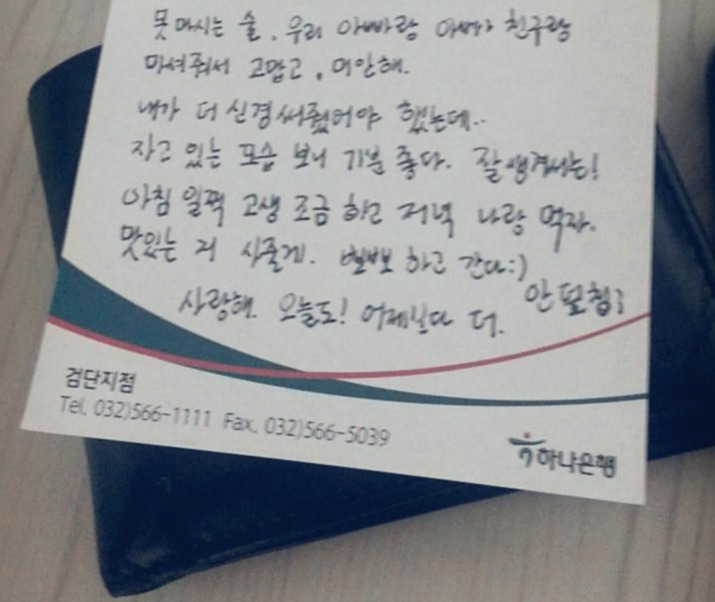 못 마시는 술, 우리 아빠랑 아빠 친구랑
마셔줘서 고맙고, 미안해.
내가 더 신경써줬어야 했는데..
자고 있는 모습 보니 기분 좋다. 잘생겨서는!
아침 일찍 고생 조금 하고 저녁 나랑 먹자.
맛있는 거 사줄게. 뽀뽀 하고 간다:)
사랑해. 오늘도! 어제보다 더.
검단지점
Tel. 032)566-1111 Fax. 032)566-5039
하나은행